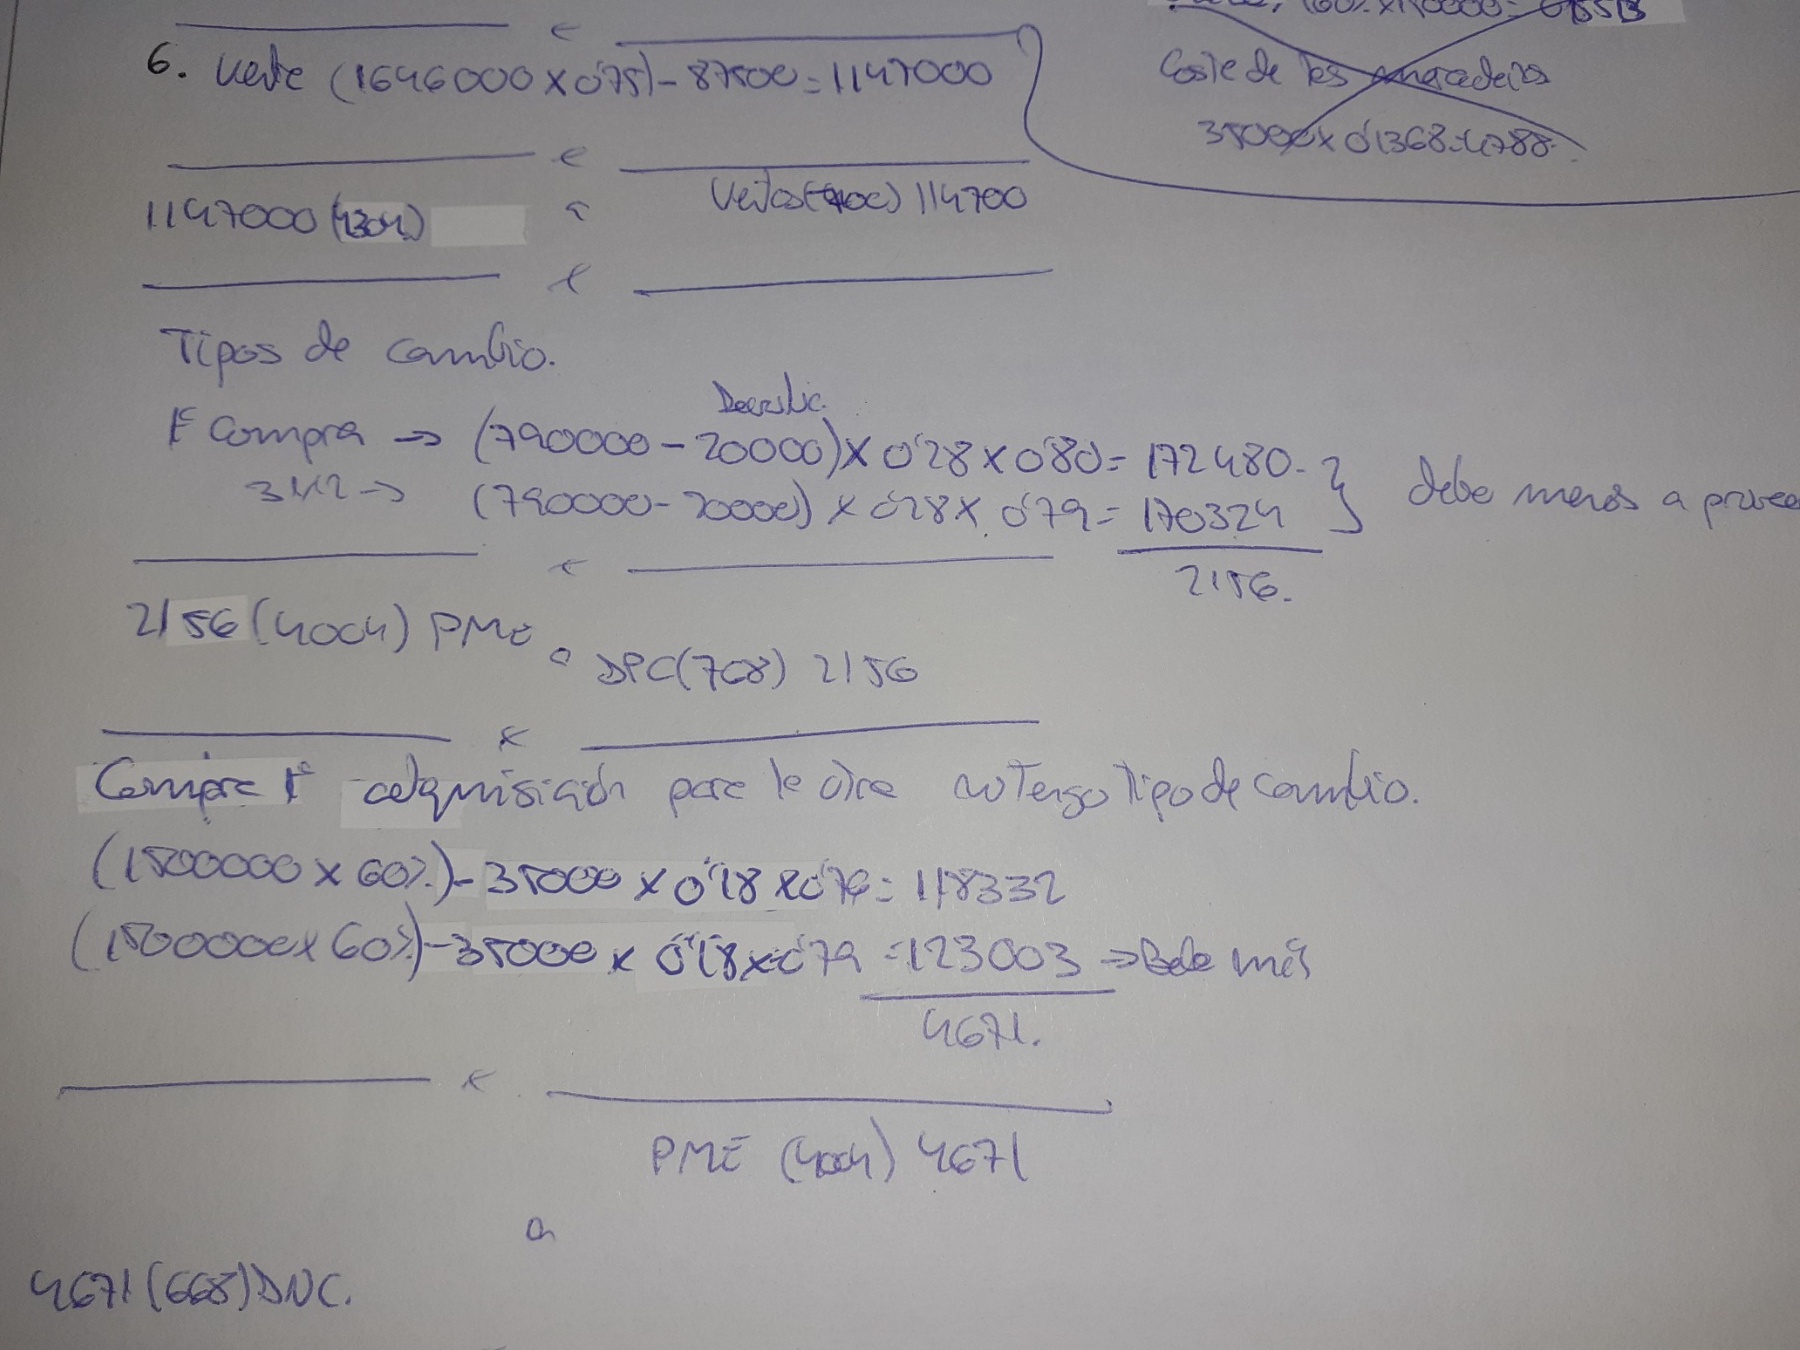 60% x 190000=
6. Venta (1646000 x 0'75) - 87500 = 1147000
Coste de las mercaderías
35000 x 0'1368 = 4788.
1147000 (4304)
a
Ventas (700) 114700
Tipos de cambio.
Descubic.
1ª Compra → (790000 - 20000) x 0'28 x 0'80 = 172480.
31/12 → (790000 - 20000) x 0'28 x 0'79 = 170324
debe menos a provee
2156.
2156 (4004) PME
a DPC (768) 2156
Compra 1ª adquisición para la otra no tengo tipo de cambio.
(1500000 x 60%) - 35000 x 0'18 x 0'76 = 118332
(1500000 x 60%) - 35000 x 0'18 x 0'79 = 123003 → Debe más
4671.
PME (4004) 4671
a
4671 (668) DNC.